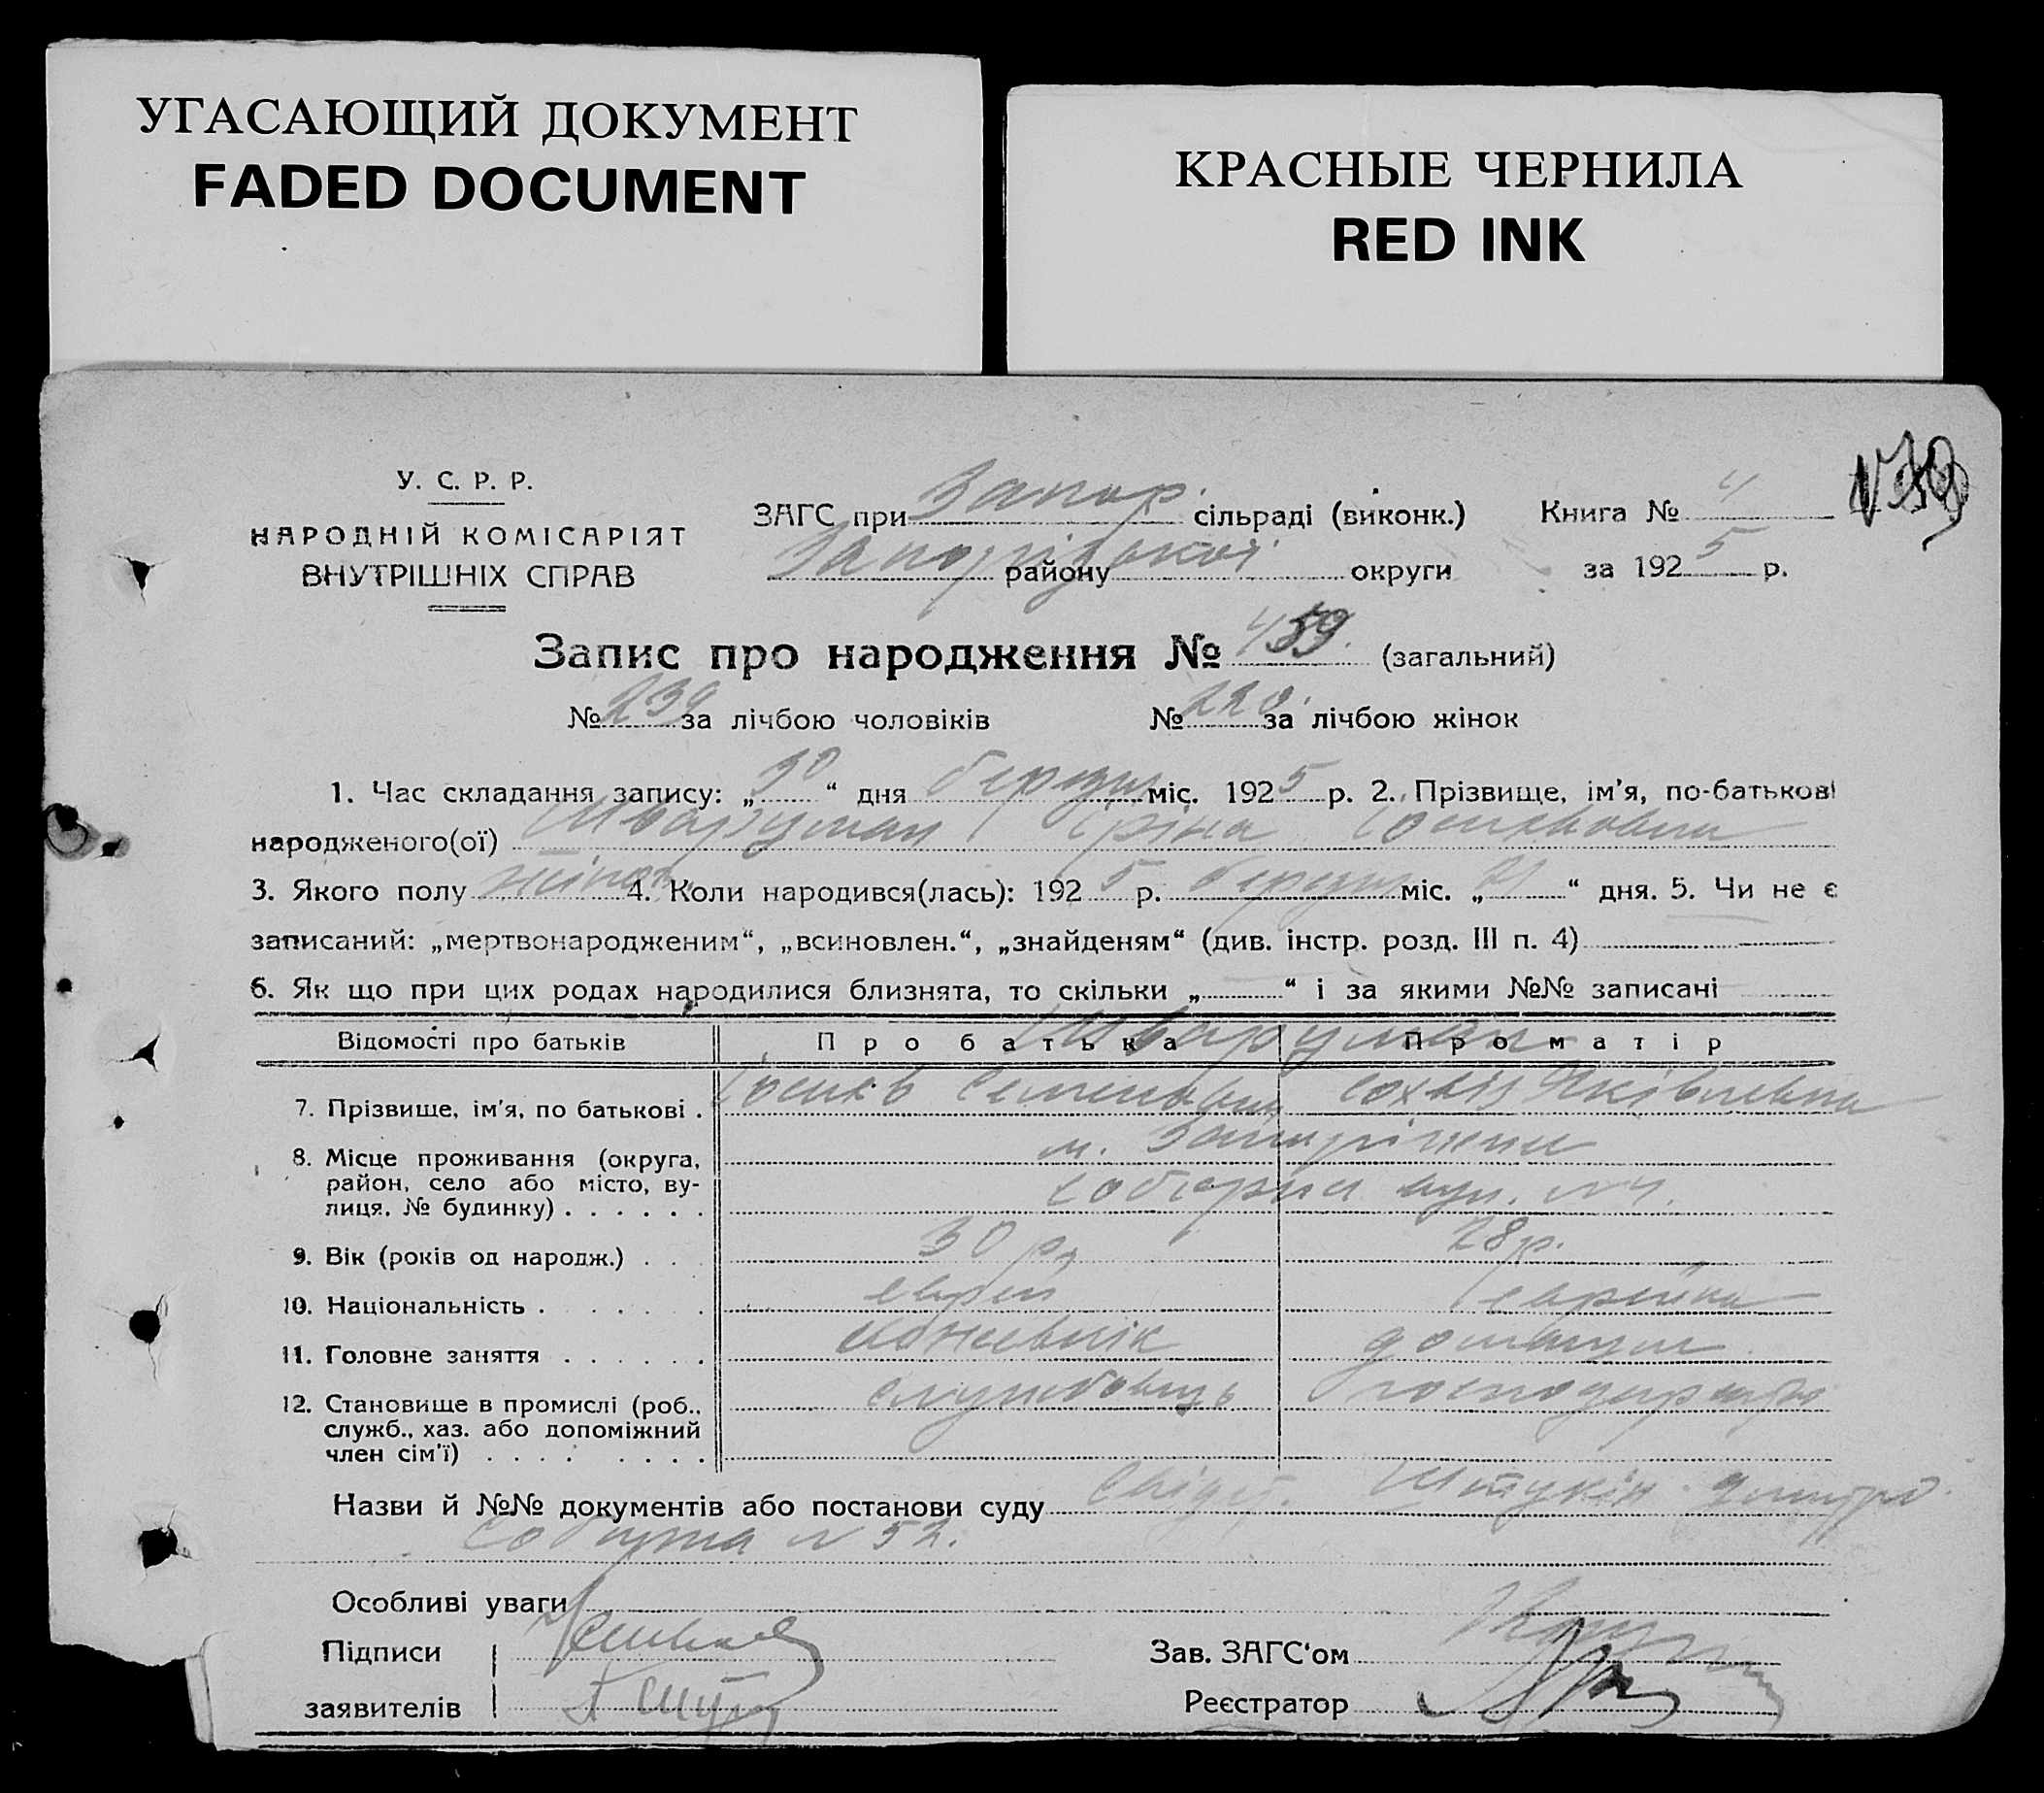 УГАСАЮЩИЙ ДОКУМЕНТ
FADED DOCUMENT
КРАСНЫЕ ЧЕРНИЛА
RED INK
У. С. Р. Р.
НАРОДНІЙ КОМІСАРІЯТ
ВНУТРІШНІХ СПРАВ
ЗАГС при Запор. сільраді (виконк.)
Запорізької району округи
Книга № 4
за 1925 р.
Запис про народження № 459. (загальний)
№ 239 за лічбою чоловіків № 220 за лічбою жінок
1. Час складання запису: „30“ дня березня міс. 1925 р. 2. Прізвище, ім'я, по-батькові
народженого(ої) Шварцман Іріна
3. Якого полу жіноч. 4. Коли народився(лась): 1925 р. березня міс. „21“ дня. 5. Чи не є
записаний: „мертвонародженим“, „всиновлен.“, „знайденям“ (див. інстр. розд. III п. 4)
6. Як що при цих родах народилися близнята, то скільки „ “ і за якими №№ записані
Відомості про батьків Про батька Про матір
Шварцман
7. Прізвище, ім'я, по батькові . Семенович Яківлевна
8. Місце проживання (округа, м. Запоріжжя
район, село або місто, ву-
лиця. № будинку) . . . . . . Соборна вул. №4.
9. Вік (років од народж.) . . . 30 р. 28 р.
10. Національність . . . . . . еврей еврейка
11. Головне заняття . . . . . . домашнє
12. Становище в промислі (роб., службовець господарство
служб., хаз. або допоміжний
член сім'ї) . . . . . . . .
Назви й №№ документів або постанови суду Свідут.
№ 52.
Особливі уваги
Підписи
Зав. ЗАГС'ом
заявителів
Реєстратор